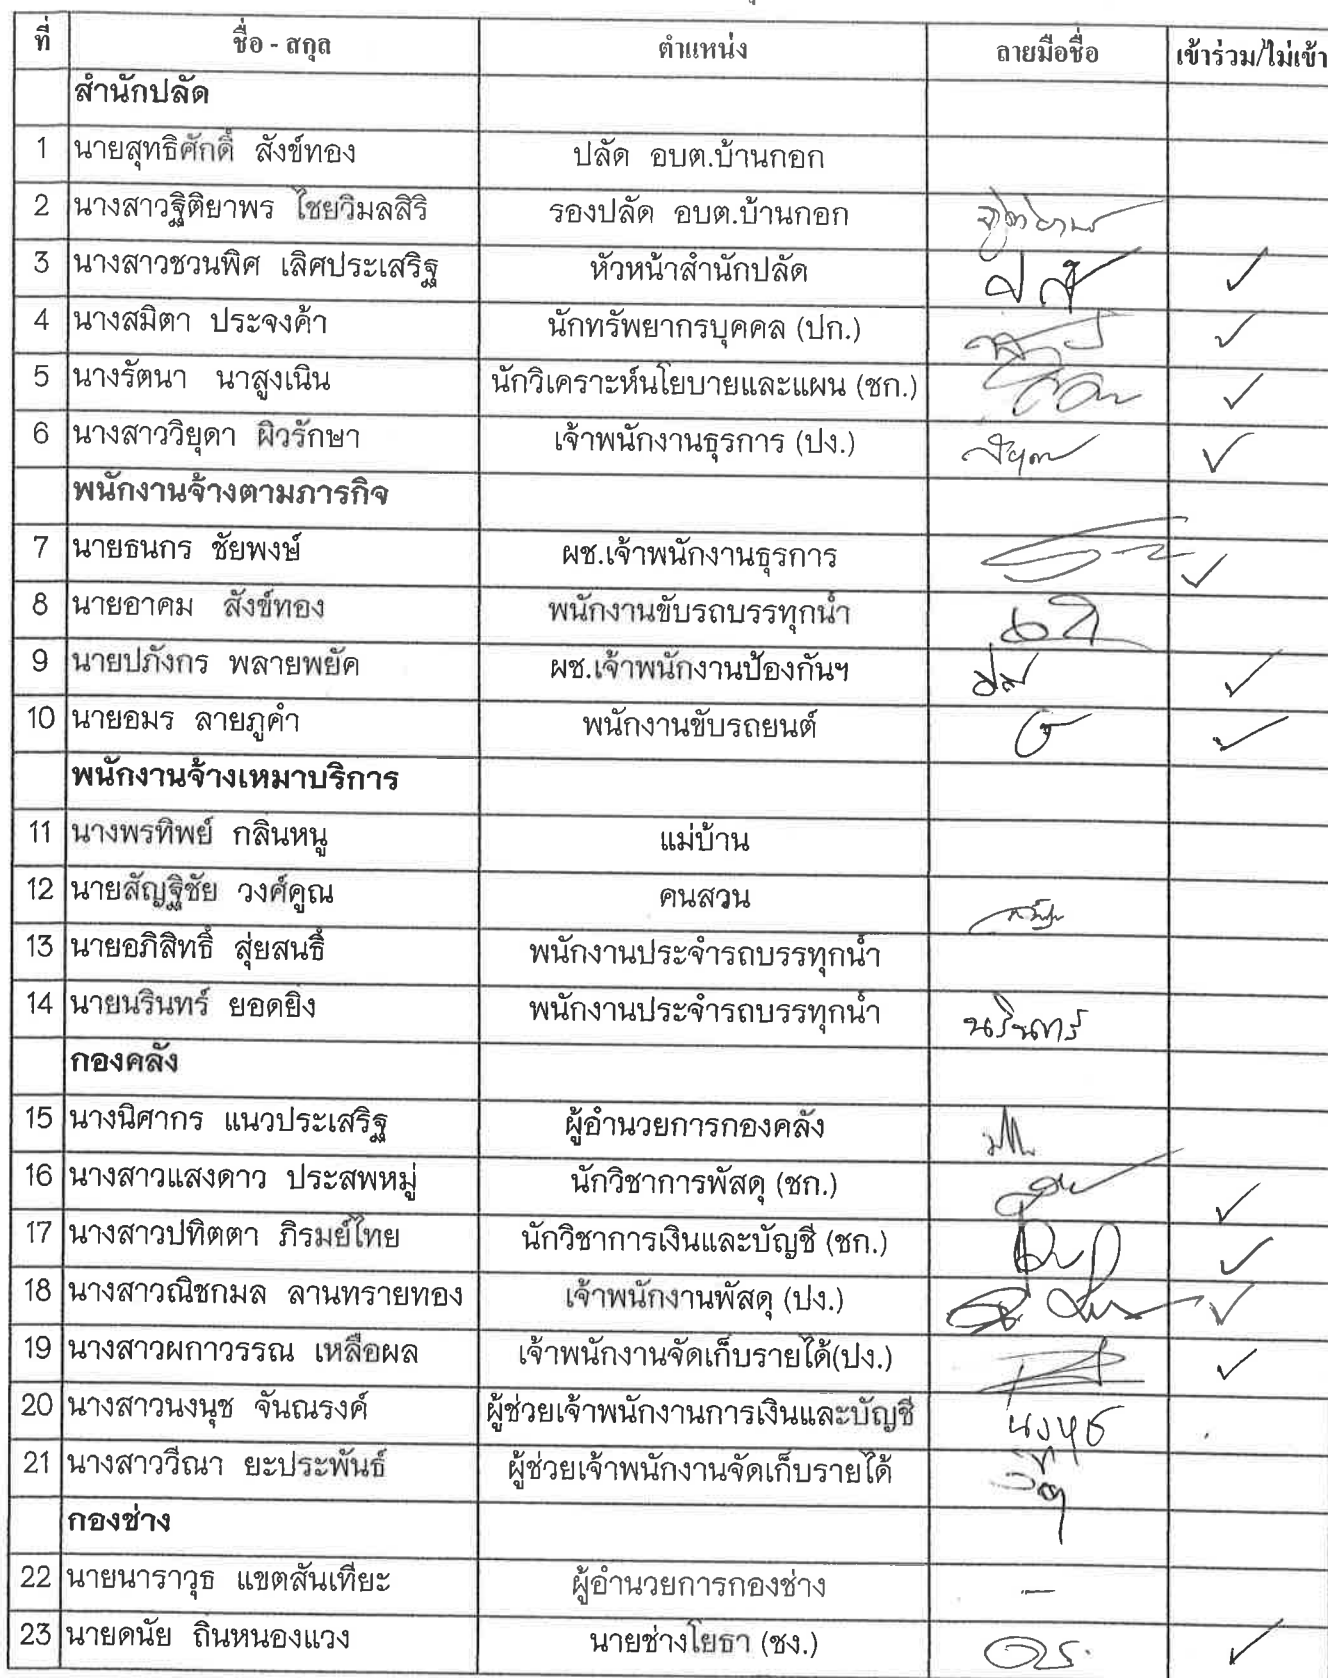 ที่ ชื่อ - สกุล ตำแหน่ง ลายมือชื่อ เข้าร่วม/ไม่เข้า
สำนักปลัด
1 นายสุทธิศักดิ์ สังข์ทอง ปลัด อบต.บ้านกอก
2 นางสาวฐิติยาพร ไชยวิมลสิริ รองปลัด อบต.บ้านกอก ฐิติยาพร
3 นางสาวชวนพิศ เลิศประเสริฐ หัวหน้าสำนักปลัด ✓
4 นางสมิตา ประจงค้า นักทรัพยากรบุคคล (ปก.) ✓
5 นางรัตนา นาสูงเนิน นักวิเคราะห์นโยบายและแผน (ชก.) ✓
6 นางสาววิยุดา ผิวรักษา เจ้าพนักงานธุรการ (ปง.) ✓
พนักงานจ้างตามภารกิจ
7 นายธนกร ชัยพงษ์ ผช.เจ้าพนักงานธุรการ ✓
8 นายอาคม สังข์ทอง พนักงานขับรถบรรทุกน้ำ
9 นายปภังกร พลายพยัค ผช.เจ้าพนักงานป้องกันฯ ✓
10 นายอมร ลายภูคำ พนักงานขับรถยนต์ ✓
พนักงานจ้างเหมาบริการ
11 นางพรทิพย์ กลิ่นหนู แม่บ้าน
12 นายสัญฐิชัย วงศ์คูณ คนสวน
13 นายอภิสิทธิ์ สุ่ยสนธิ์ พนักงานประจำรถบรรทุกน้ำ
14 นายนรินทร์ ยอดยิ่ง พนักงานประจำรถบรรทุกน้ำ นรินทร์
กองคลัง
15 นางนิศากร แนวประเสริฐ ผู้อำนวยการกองคลัง
16 นางสาวแสงดาว ประสพหมู่ นักวิชาการพัสดุ (ชก.) ✓
17 นางสาวปทิตตา ภิรมย์ไทย นักวิชาการเงินและบัญชี (ชก.) ✓
18 นางสาวณิชกมล ลานทรายทอง เจ้าพนักงานพัสดุ (ปง.) ✓
19 นางสาวผกาวรรณ เหลือผล เจ้าพนักงานจัดเก็บรายได้(ปง.) ✓
20 นางสาวนงนุช จันณรงค์ ผู้ช่วยเจ้าพนักงานการเงินและบัญชี
21 นางสาววีณา ยะประพันธ์ ผู้ช่วยเจ้าพนักงานจัดเก็บรายได้
กองช่าง
22 นายนาราวุธ แขตสันเทียะ ผู้อำนวยการกองช่าง -
23 นายดนัย ถินหนองแวง นายช่างโยธา (ชง.) ✓